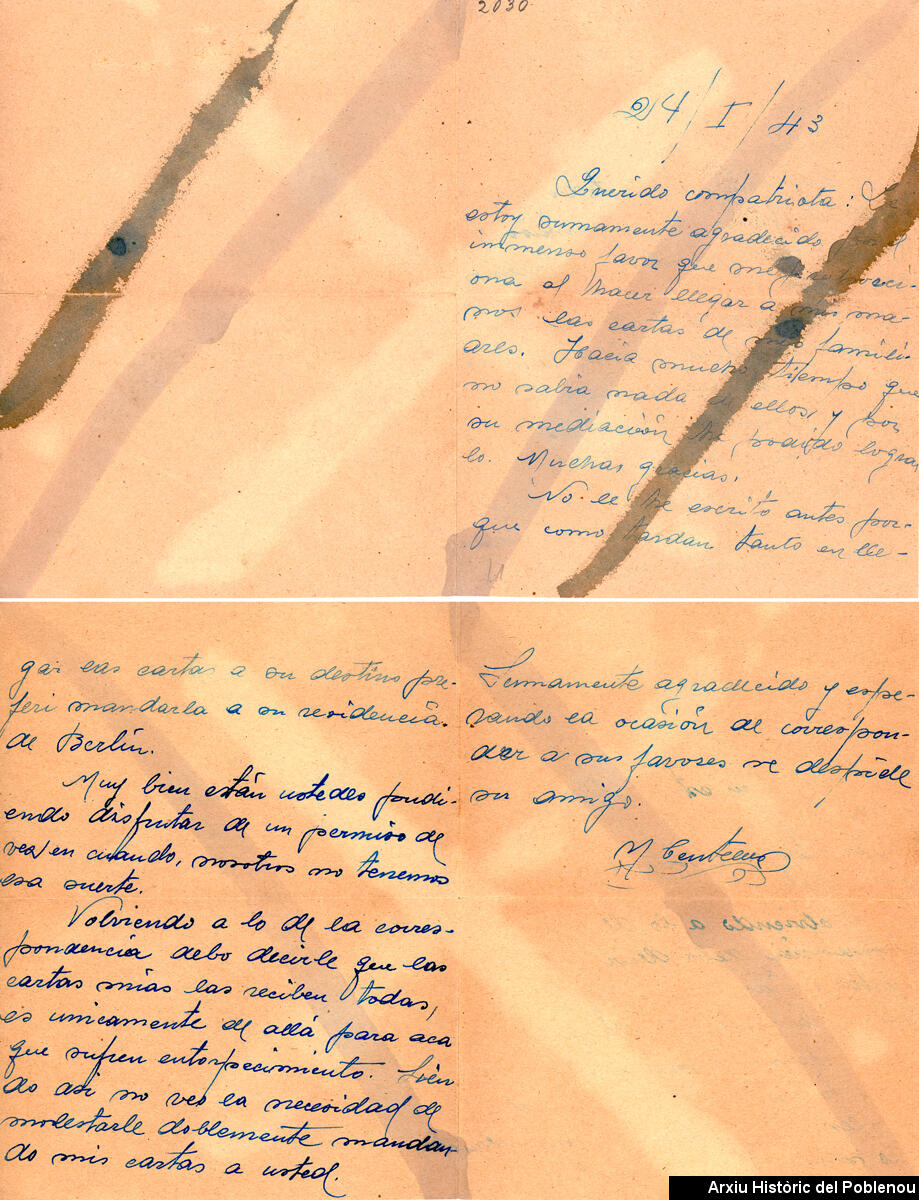 2030
24/I/43
Querido compatriota: Le
estoy sumamente agradecido por el
immenso favor que me
ona al hacer llegar a mis ma-
nos las cartas de mis famili-
ares. Hacia mucho tiempo que
no sabia nada de ellos, y por
su mediación he podido lograr
lo. Muchas gracias.
No le he escrito antes por-
que como tardan tanto en lle-
gar las cartas a su destino pre-
feri mandarla a su residencia
de Berlín.
Muy bien están ustedes pudi-
endo disfrutar de un permiso de
vez en cuando, nosotros no tenemos
esa suerte.
Volviendo a lo de la corres-
pondencia debo decirle que las
cartas mias las reciben todas,
es unicamente de allá para aca
que sufren entorpecimiento. Sien
do asi no veo la necesidad de
molestarle doblemente mandan-
do mis cartas a usted.
Sumamente agradecido y espe-
rando la ocasión de correspon-
der a sus favores se despide
su amigo.
M Centellas
Arxiu Històric del Poblenou